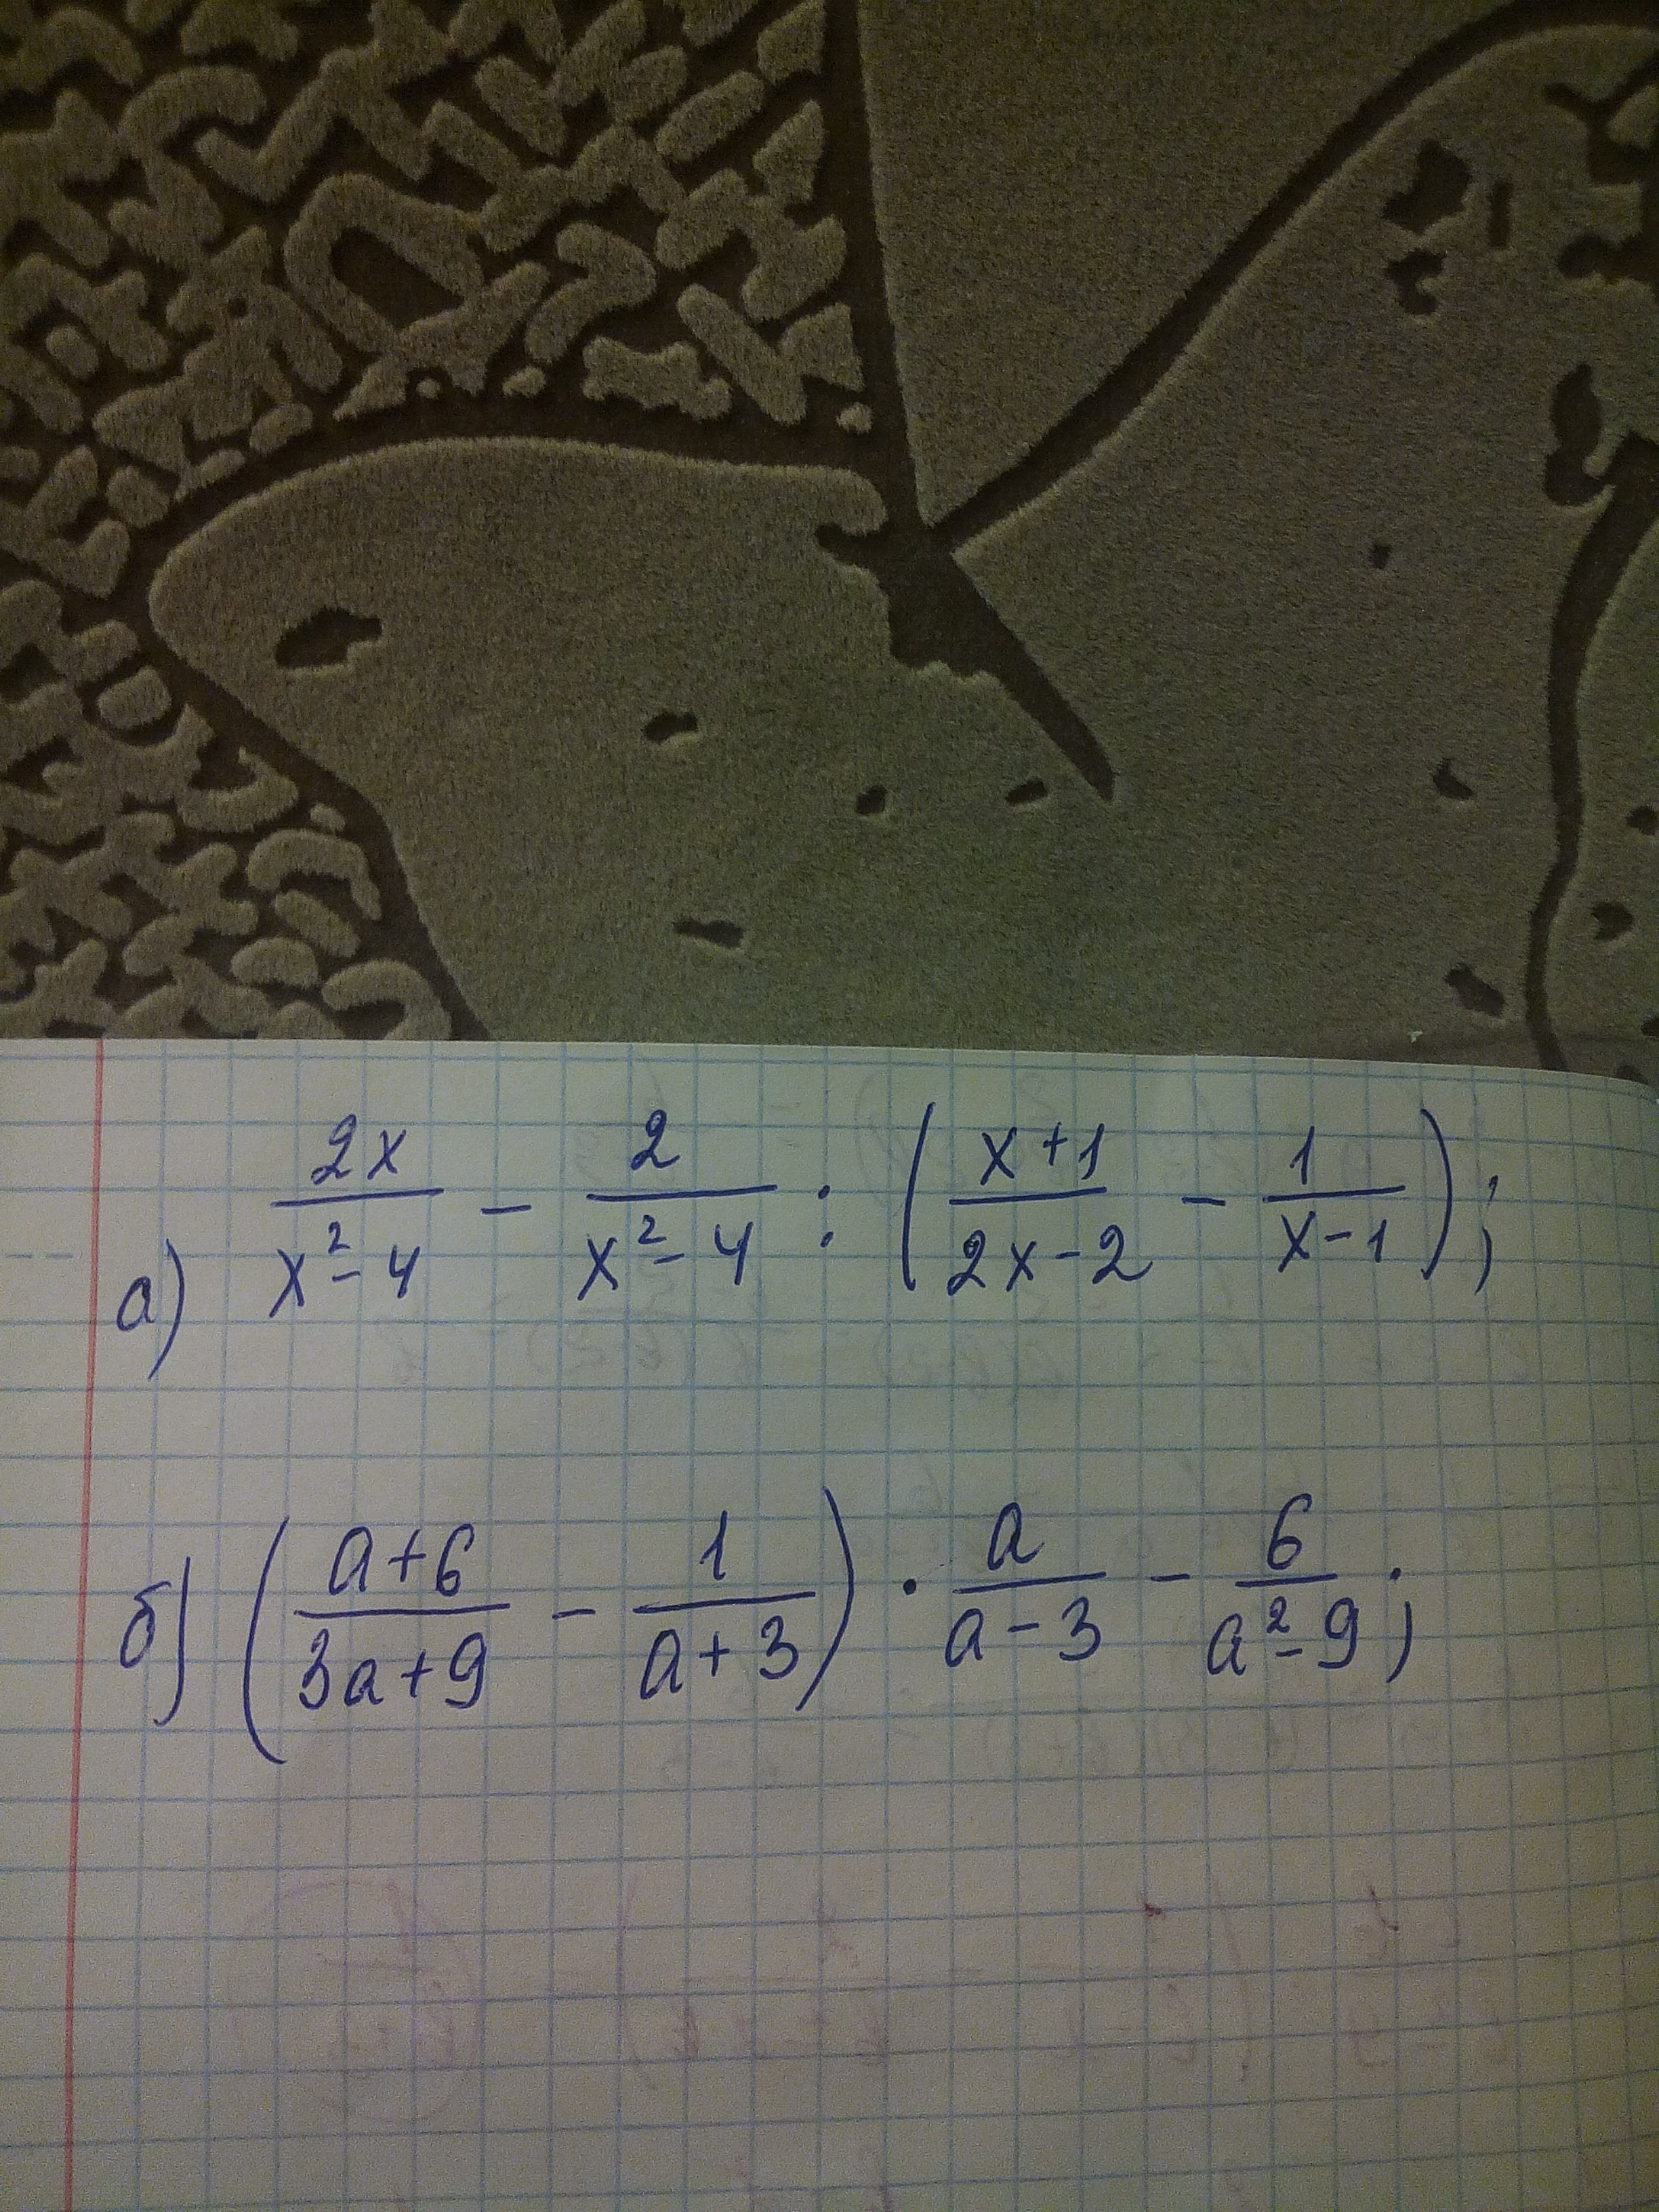 а) 2x/(x²-4) - 2/(x²-4) : ((x+1)/(2x-2) - 1/(x-1));
б) ((a+6)/(3a+9) - 1/(a+3)) · a/(a-3) - 6/(a²-9);